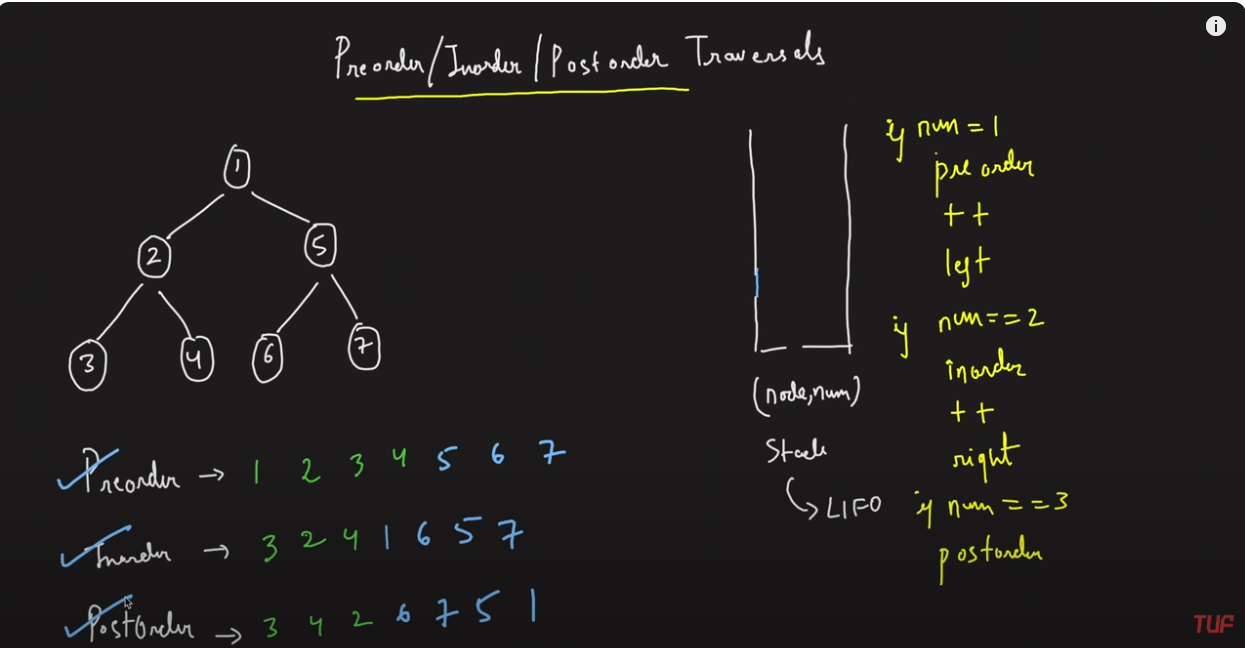 Preorder/Inorder/Postorder Traversals
1
2
5
3
4
6
7
Preorder → 1 2 3 4 5 6 7
Inorder → 3 2 4 1 6 5 7
PostOrder → 3 4 2 6 7 5 1
(node,num)
Stack
↳ LIFO
if num = 1
preorder
++
left
if num == 2
inorder
++
right
if num == 3
postorder
TUF